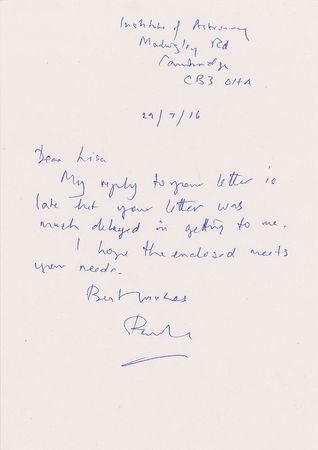 Institute of Astronomy
Madingley Rd
Cambridge
CB3 0HA
29/7/16
Dear Lisa
My reply to your letter is
late but your letter was
much delayed in getting to me.
I hope the enclosed meets
your needs.
Best wishes